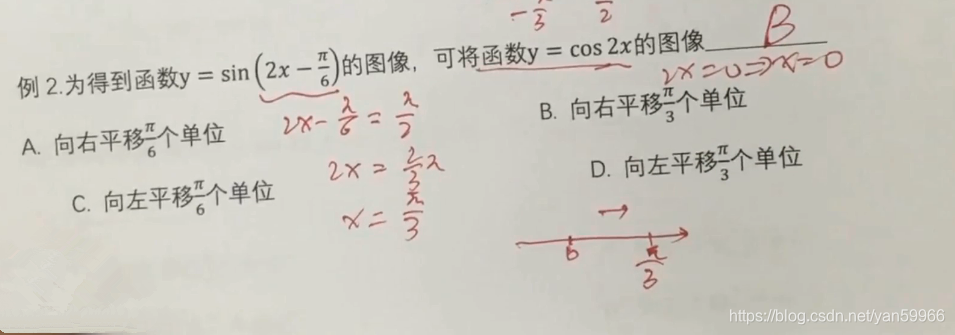 -π/3 π/2
例2.为得到函数y = sin(2x − π/6)的图像，可将函数y = cos 2x的图像 B
2x=0⇒x=0
A. 向右平移π/6个单位
B. 向右平移π/3个单位
2x-π/6=π/2
C. 向左平移π/6个单位
D. 向左平移π/3个单位
2x=2/3π
x=π/3
→
0 π/3
https://blog.csdn.net/yan59966